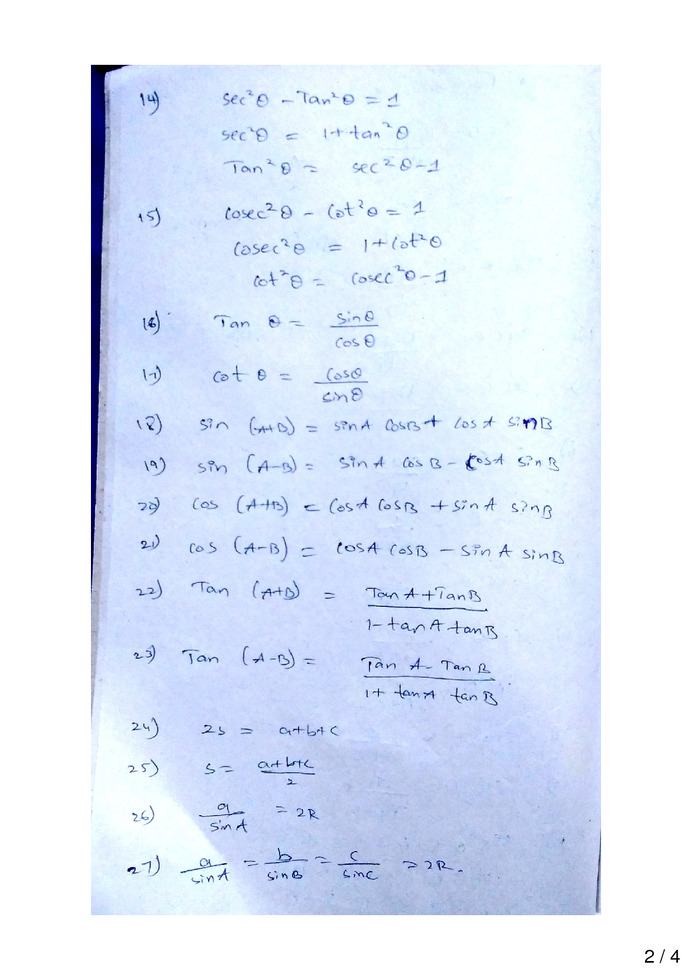 14) sec²θ - Tan²θ = 1
sec²θ = 1 + tan²θ
Tan²θ = sec²θ-1
15) Cosec²θ - Cot²θ = 1
Cosec²θ = 1+Cot²θ
Cot²θ = Cosec²θ-1
16) Tan θ = sinθ/cosθ
17) Cot θ = Cosθ/sinθ
18) sin (A+B) = sinA CosB + Cos A sinB
19) sin (A-B) = sinA Cos B - CosA sinB
20) Cos (A+B) = CosA CosB + sin A sinB
21) Cos (A-B) = CosA CosB - sin A sinB
22) Tan (A+B) = Tan A + TanB / 1- tan A tan B
23) Tan (A-B) = Tan A - Tan B / 1+ tanA tan B
24) 2s = a+b+c
25) s = a+b+c / 2
26) a / sinA = 2R
27) a / sinA = b / sinB = c / sinC = 2R.
2 / 4